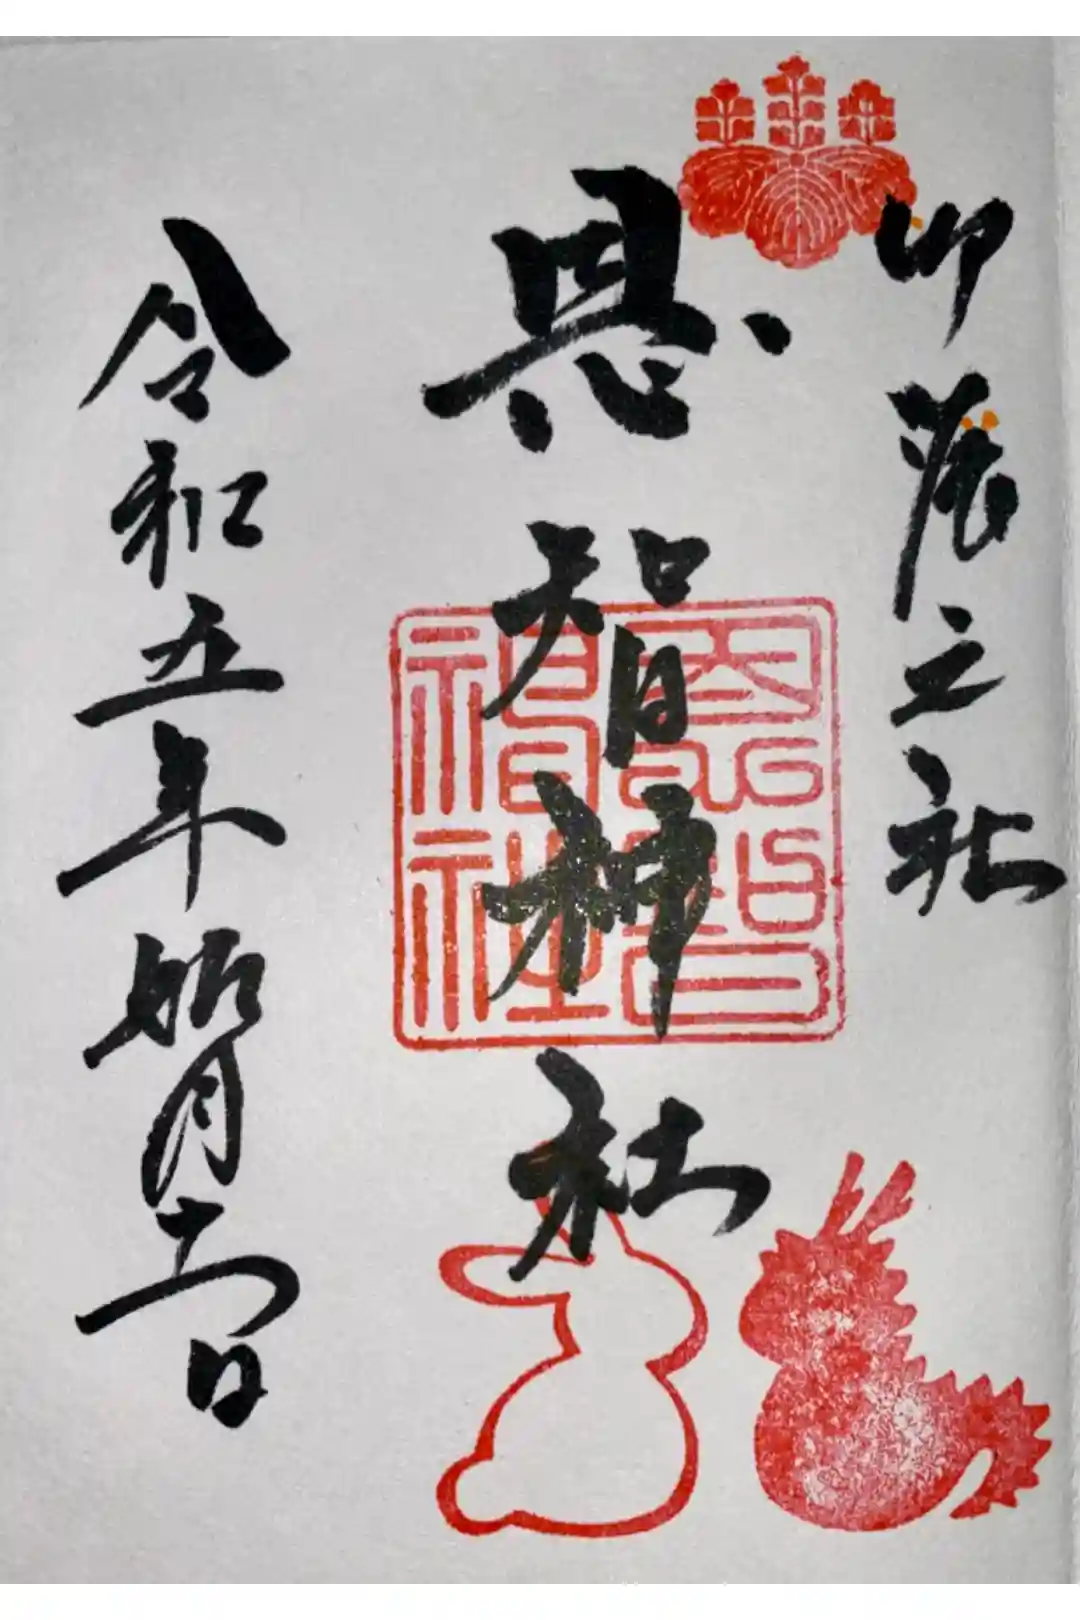 卯辰之社
恩智神社
恩智神社
令和五年 月 日